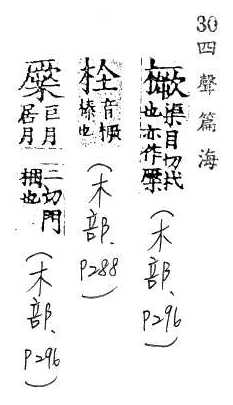 30 四聲篇海
橛 渠月切杙也亦作𣡌(木部、P296)
栓 音橛橛也(木部、P288)
巨月居月二切門梱也(木部、P296)